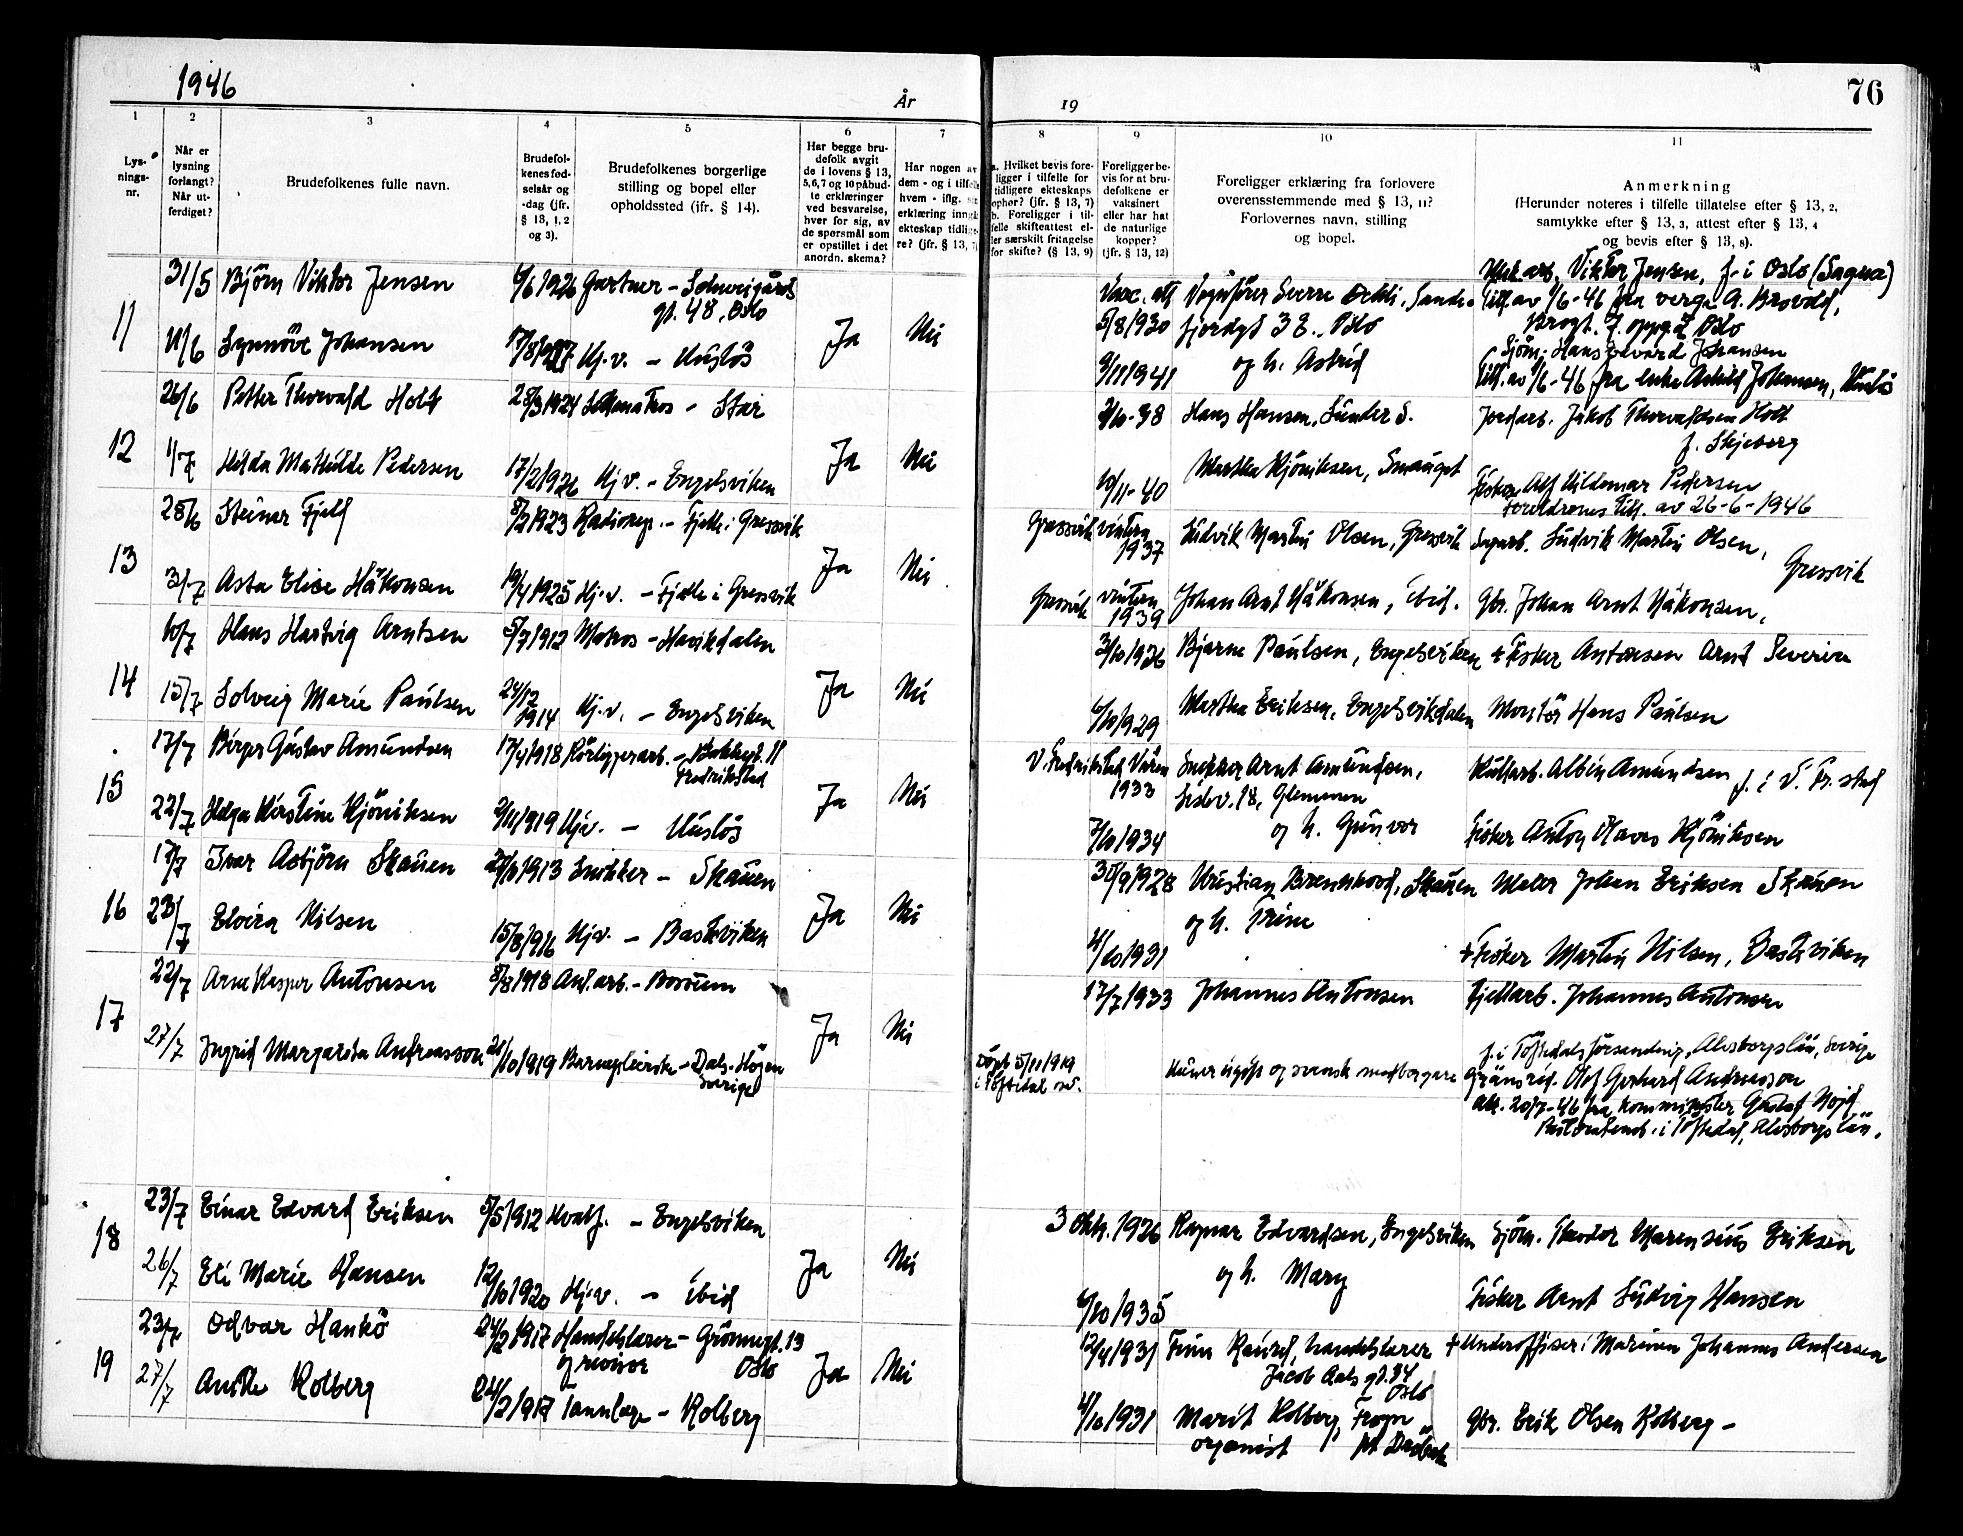 1946
År
19
76
1
2
3
4
5
6
7
8
9
10
11
Lys-
nings-
nr.
Når er
lysning
forlangt?
Når ut-
ferdiget?
Brudefolkenes fulle navn.
Brudefol-
kenes fød-
selsår og
-dag (jfr.
§ 13, 1, 2
og 3).
Brudefolkenes borgerlige
stilling og bopel eller
opholdssted (ifr. § 14).
Har begge bru-
defolk avgit
de i lovens § 13,
5, 6, 7 og 10 påbud-
te erklæringer
ved besvarelse,
hver for sig, av
de spørsmål som
er opstillet i det
anordn. skema?
Har nogen av
dem - og i tilfelle
hvem - iflg. sin
erklæring inngått
ekteskap tidlige-
re? (jfr. § 13, 7)
a. Hvilket bevis fore-
ligger i tilfelle for
tidligere ekteskaps
ophør? (jfr. § 13, 7)
b. Foreligger i til-
felle skifteattest el-
ler særskilt fritagelse
for skifte? (§ 13, 9)
Foreligger be-
vis for at bru-
defolkene er
vaksinert
eller har hat
de naturlige
kopper?
(jfr. § 13, 12)
Foreligger erklæring fra forlovere
overensstemmende med § 13, 11?
Forlovernes navn, stilling
og bopel.
Anmerkning
(Herunder noteres i tilfelle tillatelse efter § 13, 2,
samtykke efter § 13, 3, attest efter § 13, 4
og bevis efter § 13, 8).
11
31/5 Björn Viktor Jensen 6/6 1926 Gartner - Solveigårds
gt. 48, Oslo
Vacc. att
5/8 1930
fjordgt 3 E., Oslo
og h. Astrid
Viktor Jensen, f. i Oslo (Sagene)
Till. av 1/6-46 fra verge A. Brovold,
Oslo
11/6 Synnöve Johansen Hj.v. - Huslös Ja Nei
9/11 1941
Sjöm. Hans Edvard Johansen
Till. av 1/6-46 fra enke Johansen, Huslös
12
26/6 Petter Thorvald Holt 28/3 1924
2/10-38 Hans Hansen, Sunder S. Jordarb. Jakob Thorvaldsen Holt
f. Skjeberg
1/7 Hilda Mathilde Pedersen 17/2 1926 Hj.v. - Engelsviken Ja Nei
10/11-40 Martha Kjöniksen, Smauget Fisker Alf Hildemar Pedersen
Foreldrenes till. av 26-6-1946
13
28/6 Steinar Fjeld 8/2 1923 Radiorep. - Fjelle i Gressvik
Gressvik vinteren
1937 Ludvik Martin Olsen, Gressvik Sagarb. Ludvik Martin Olsen,
Gressvik
3/7 Asta Elise Håkonsen 19/4 1925 Hj.v. - Fjelle i Gressvik Ja Nei
Gressvik vinteren
1939 Johan Arnt Håkonsen, ibid. Gbr. Johan Arnt Håkonsen,
14
10/7 Hans Hartvig Arntsen 5/7 1912 Matros - Havikdalen
3/10 1926 Bjarne Paulsen, Engelsviken + Fisker Antonsen Arnt Severin
15/7 Solveig Marie Paulsen 24/12
1914 Hj.v. - Engelsviken Ja Nei
6/10 1929 Martha Eriksen, Engelsvikdalen Montör Hans Paulsen
15
17/7 Birger Gustav Amundsen 17/4 1918 Rörleggerarb.
Fredrikstad
V. Fredrikstad Våren
1933 Snekker Arnt Amundsen,
18, Glemmen
og h. Gunvor
Albin Amundsen f. i V. Fr.stad
22/7 Helga Kirstine Kjöniksen 2/11 1919 Hj.v. - Huslös Ja Nei
7/10 1934 Fisker Anton Kjöniksen
16
17/7 Ivar Asbjörn Skauen 1913 Snekker - Skauen
1928 Kristian Skauen
og h. Trine
Maler Johan Eriksen Skauen
23/7 Elvira Nilsen 15/8 1916 Hj.v. - Bastviken Ja Nei
4/10 1931 + Fisker Martin Nilsen, Bastviken
17
22/7 Arne Kasper Antonsen 8/8 1918 Anl.arb. - Borsum
17/7 1933 Johannes Antonsen Fjellarb. Johannes Antonsen
27/7 Ingrid Margareta Andreasson 1919 Barnepleierske - Dals-Högen
Sverige Ja Nei
Döpt 5/11 1919
ugift og svensk medborgare
f. i Töftedals församling, Älvsborgs län, Sverige
Olof Gerhard Andreasson
Att. 20/7-46 fra komminister Gustaf
i Töftedal, Älvsborgs län.
18
23/7 Einar Edvard Eriksen 5/5 1912 Hvalf. - Engelsviken
3 Okt. 1926 Ragnar Edvardsen, Engelsviken
og h. Mary
Sjöm. Teodor Marensius Eriksen
26/7 Eli Marie Hansen 12/10 1920 Hj.v. - ibid Ja Nei
6/10 1935 Fisker Arnt Ludvig Hansen
19
23/7 Odvar Hankö 24/2 1917 Handelslærer - Grönnegt. 13
og revisor Oslo
12/4 1931 Finn handelslærer
Jacob Aals gt. 34
Oslo
+ Underoffiser i Marinen Johannes Andersen
27/7 Kolberg 24/2 1917 Tannlege - Kolberg Ja Nei
4/10 1931 Marit Kolberg, Frogn
organist
Gbr. Erik Olsen Kolberg -